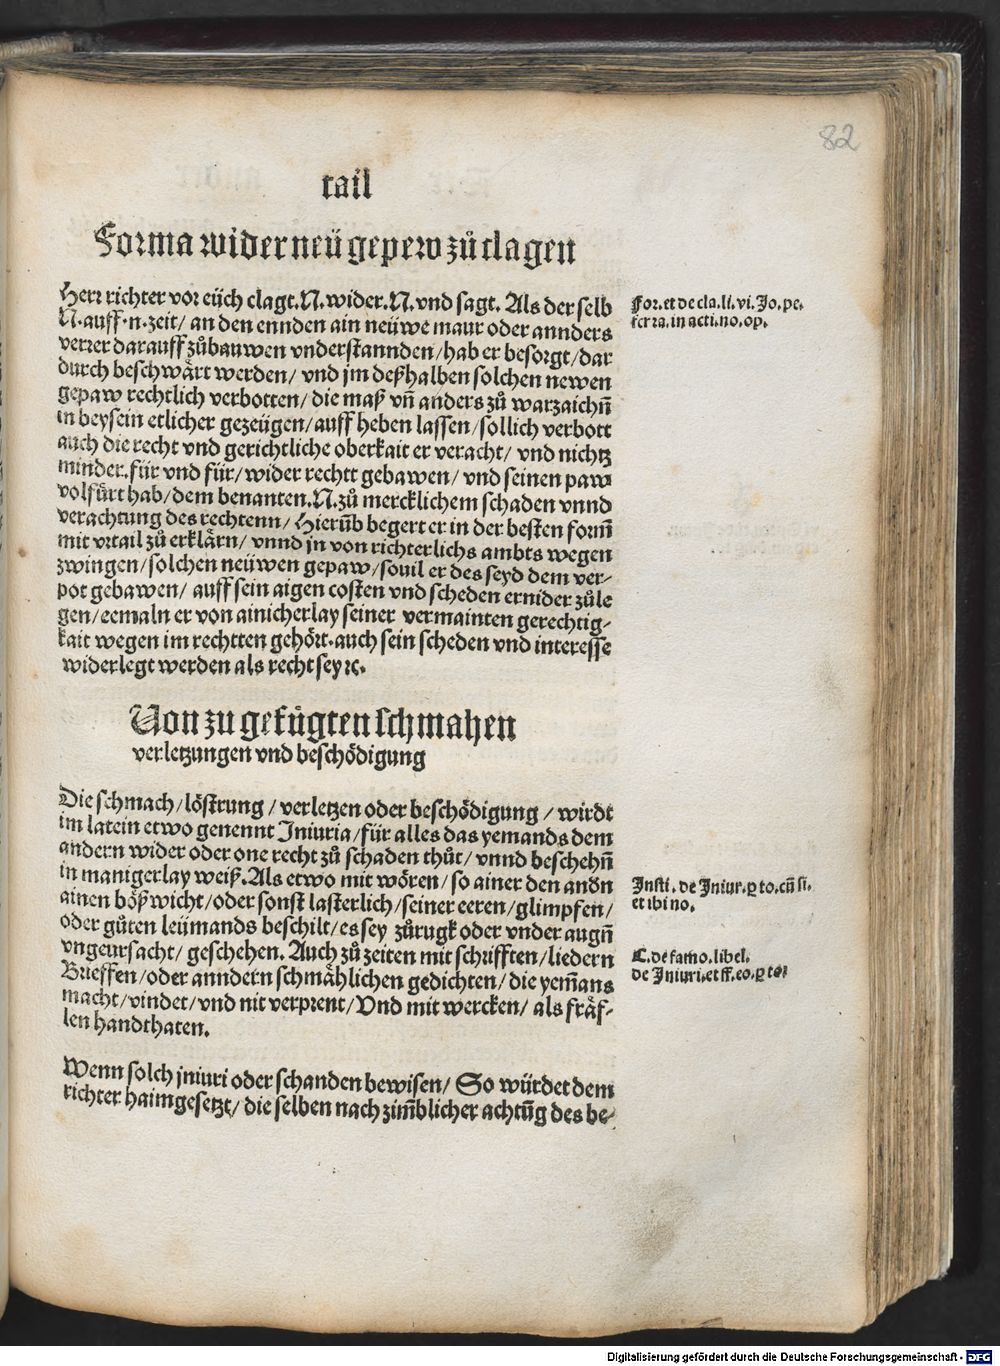 82
tail
Forma wider neü gepew zů clagen
Herr richter vor eüch clagt. N. wider. N. vnd sagt. Als der selb
N. auff. n. zeit/ an den ennden ain neüwe maur oder annders
verrer darauff zůbauwen vnderstannden/ hab er besorgt/ dar
durch beschwärt werden/ vnd jm deßhalben solchen newen
gepaw rechtlich verbotten/ die maß vñ anders zů warzaichñ
in beysein etlicher gezeügen/ auff heben lassen/ sollich verbott
auch die recht vnd gerichtliche oberkait er veracht/ vnd nichtz
minder. für vnd für/ wider rechtt gebawen/ vnd seinen paw
volfürt hab/ dem benanten. N. zů mercklichem schaden vnnd
verachtung des rechtenn/ Hierüb begert er in der besten form̃
mit vrtail zů erklärn/ vnnd jn von richterlichs ambts wegen
zwingen/ solchen neüwen gepaw/ souil er des seyd dem ver-
pot gebawen/ auff sein aigen costen vnd scheden ernider zůle
gen/ eemaln er von ainicherlay seiner vermainten gerechtig-
kait wegen im rechtten gehört. auch sein scheden vnd interesse
widerlegt werden als recht sey ꝛc.
Von zu gefügten schmahen
verletzungen vnd beschödigung
Die schmach/ löstrung/ verletzen oder beschödigung/ wirdt
im latein etwo genennt Iniuria/ für alles das yemands dem
andern wider oder one recht zů schaden thůt/ vnnd beschehñ
in manigerlay weiß. Als etwo mit wören/ so ainer den andn
ainen bößwicht/ oder sonst lasterlich/ seiner eeren/ glimpfen/
oder gůten leümands beschilt/ es sey zůrugk oder vnder augñ
vngeursacht/ geschehen. Auch zů zeiten mit schrifften/ liedern
Brieffen/ oder anndern schmählichen gedichten/ die yem̃ans
macht/ vindet/ vnd nit verprent/ Vnd mit wercken/ als fräf-
len handthaten.
Wenn solch iniuri oder schanden bewisen/ So würdet dem
richter haimgesetzt/ die selben nach zim̃blicher achtũg des be-
For. et de cla. li. vi. Jo. pe.
ferra. in acti. no. op.
Insti. de Iniur. ꝑ to. cũ si.
et ibi no.
C. de famo. libel.
de Iniuri. et ff. eo. ꝑ to.
Digitalisierung gefördert durch die Deutsche Forschungsgemeinschaft - DFG